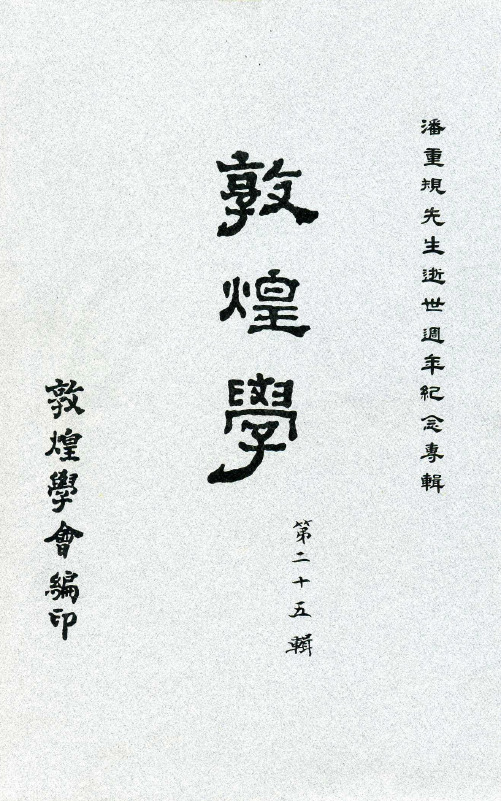 潘重規先生逝世週年紀念專輯
敦煌學
第二十五輯
敦煌學會編印